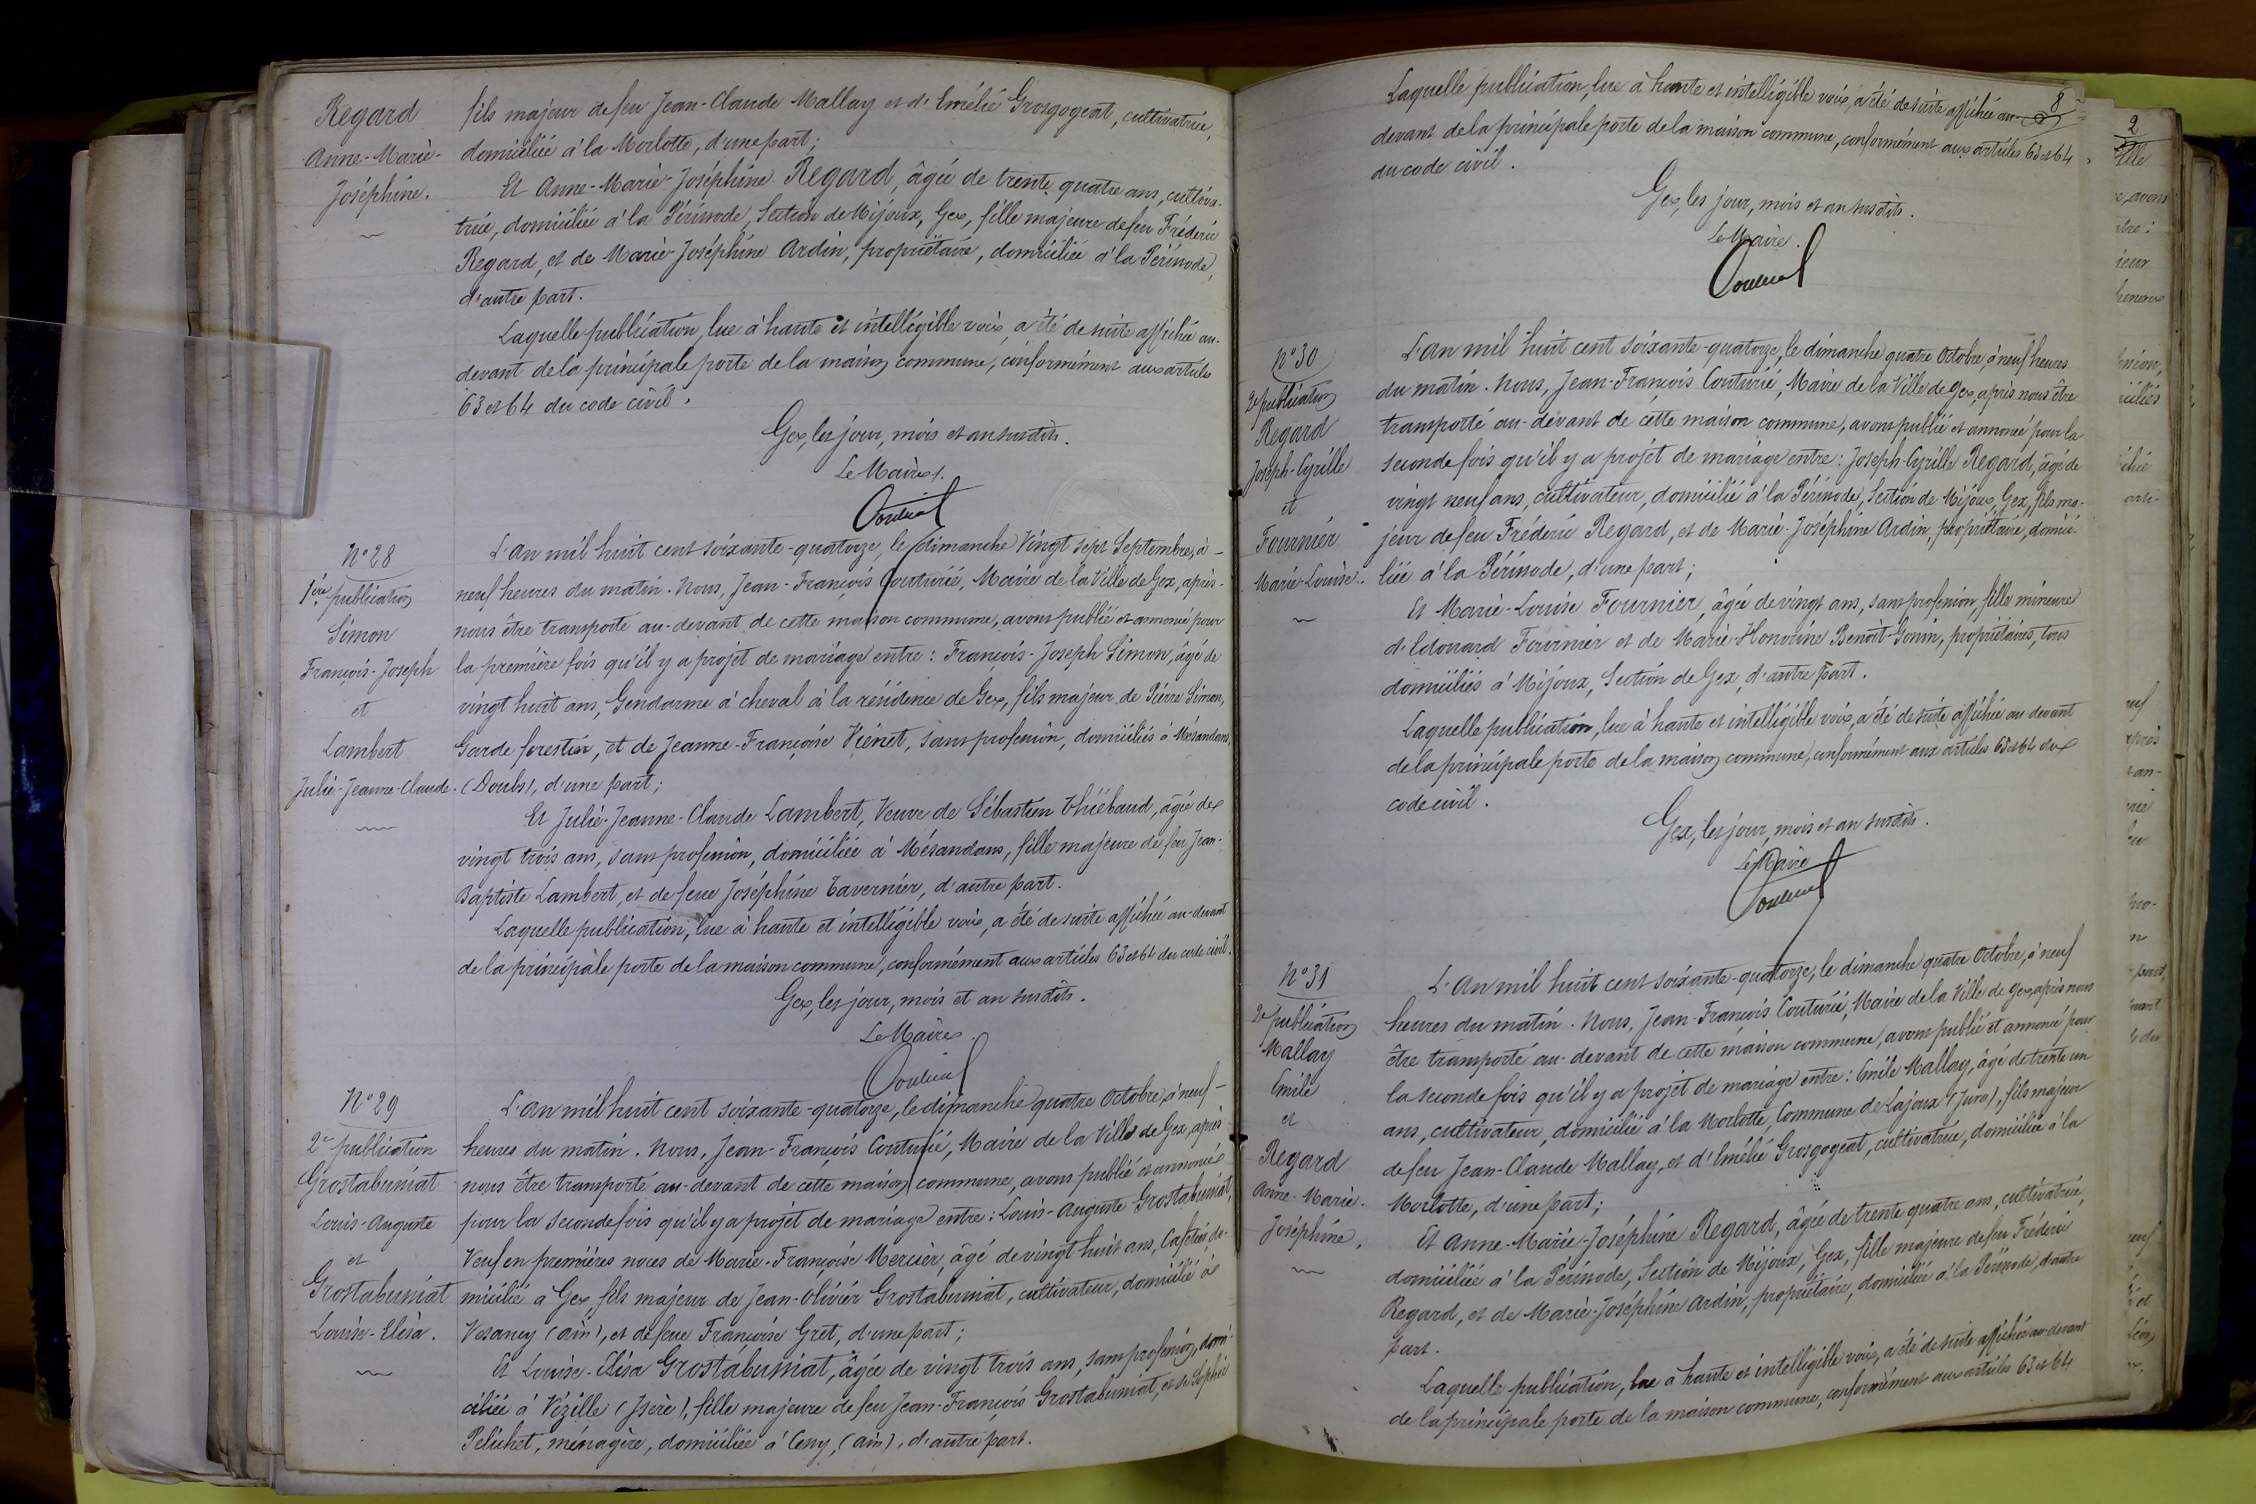 Regard
Anne-Marie-
Joséphine.
fils majeur de feu Jean-Claude Mallay et d'Emélie Grosgogeat, cultivatrice,
domiciliée à la Morlotte, d'une part;
Et Anne-Marie-Joséphine Regard, âgée de trente quatre ans, cultiva-
trice, domiciliée à la Périnode, Section de Mijoux, Gex, fille majeure de feu Fréderic
Regard, et de Marie-Joséphine Ardin, propriétaire, domiciliée à la Périnode,
d'autre part.
Laquelle publication, lue à haute et intelligible voix, a été de suite affichée au-
devant de la principale porte de la maison commune, conformément aux articles
63 et 64 du code civil.
Gex, les jour, mois et an susdits.
Le Maire.
N° 28
1ère publication
Simon
François-Joseph
et
Lambert
Julie-Jeanne-Claude.
L'An mil huit cent soixante-quatorze, le dimanche Vingt sept Septembre, à
neuf heures du matin. Nous, Jean-François Couturié, Maire de la Ville de Gex, après
nous être transporté au-devant de cette maison commune, avons publié et annoncé pour
la première fois qu'il y a projet de mariage entre: François-Joseph Simon, âgé de
vingt huit ans, Gendarme à cheval à la résidence de Gex, fils majeur de Pierre Simon,
Garde forestier, et de Jeanne-Françoise Viénet, sans profession, domiciliés à Mésandans,
(Doubs), d'une part;
Et Julie-Jeanne-Claude Lambert, Veuve de Sébastien Thiébaud, âgée de
vingt trois ans, sans profession, domiciliée à Mésandans, fille majeure de feu Jean-
Baptiste Lambert, et de feue Joséphine Tavernier, d'autre part.
Laquelle publication, lue à haute et intelligible voix, a été de suite affichée au-devant
de la principale porte de la maison commune, conformément aux articles 63 et 64 du code civil.
Gex, les jour, mois et an susdits.
Le Maire.
N° 29
2e publication
Grostabussiat
Louis-Auguste
et
Grostabussiat
Louise-Elisa.
L'An mil huit cent soixante-quatorze, le dimanche quatre Octobre, à neuf
heures du matin. Nous, Jean-François Couturié, Maire de la Ville de Gex, après
nous être transporté au-devant de cette maison commune, avons publié et annoncé
pour la seconde fois qu'il y a projet de mariage entre: Louis-Auguste Grostabussiat,
Veuf en premières noces de Marie-Françoise Mercier, âgé de vingt huit ans, Cafetier, do-
micilié à Gex, fils majeur de Jean-Olivier Grostabussiat, cultivateur, domicilié à
Vesancy (Ain), et de feue Françoise Gret, d'une part;
Et Louise-Elisa Grostabussiat, âgée de vingt trois ans, sans profession, domi-
ciliée à Vizille (Isère), fille majeure de feu Jean-François Grostabussiat, et de Sophie
Pelichet, ménagère, domiciliée à Cessy, (Ain), d'autre part.
8
Laquelle publication, lue à haute et intelligible voix, a été de suite affichée au
devant de la principale porte de la maison commune, conformément aux articles 63 et 64
du code civil.
Gex, les jour, mois et an susdits.
Le Maire.
N° 30
2e publication
Regard
Joseph-Cyrille
et
Fournier
Marie-Louise.
L'An mil huit cent soixante-quatorze, le dimanche quatre Octobre, à neuf heures
du matin. Nous, Jean-François Couturié, Maire de la Ville de Gex, après nous être
transporté au-devant de cette maison commune, avons publié et annoncé pour la
seconde fois qu'il y a projet de mariage entre: Joseph-Cyrille Regard, âgé de
vingt neuf ans, cultivateur, domicilié à la Périnode, Section de Mijoux, Gex, fils ma-
jeur de feu Fréderic Regard, et de Marie-Joséphine Ardin, propriétaire, domici-
liée à la Périnode, d'une part;
Et Marie-Louise Fournier, âgée de vingt ans, sans profession, fille mineure
d'Edouard Fournier et de Marie-Honorine Benoit-Gonin, propriétaires, tous
domiciliés à Mijoux, Section de Gex, d'autre part.
Laquelle publication, lue à haute et intelligible voix, a été de suite affichée au devant
de la principale porte de la maison commune, conformément aux articles 63 et 64 du
code civil.
Gex, les jour, mois et an susdits.
Le Maire
N° 31
2e publication
Mallay
Emile
et
Regard
Anne-Marie-
Joséphine.
L'An mil huit cent soixante-quatorze, le dimanche quatre Octobre, à neuf
heures du matin. Nous, Jean-François Couturié, Maire de la Ville de Gex, après nous
être transporté au-devant de cette maison commune, avons publié et annoncé pour
la seconde fois qu'il y a projet de mariage entre: Emile Mallay, âgé de trente un
ans, cultivateur, domicilié à la Morlotte, Commune de Lajoux (Jura), fils majeur
de feu Jean-Claude Mallay, et d'Emélie Grosgogeat, cultivatrice, domiciliée à la
Morlotte, d'une part;
Et Anne-Marie-Joséphine Regard, âgée de trente quatre ans, cultivatrice,
domiciliée à la Périnode, Section de Mijoux, Gex, fille majeure de feu Fréderic
Regard, et de Marie-Joséphine Ardin, propriétaire, domiciliée à la Périnode, d'autre
part.
Laquelle publication, lue à haute et intelligible voix, a été de suite affichée au-devant
de la principale porte de la maison commune, conformément aux articles 63 et 64